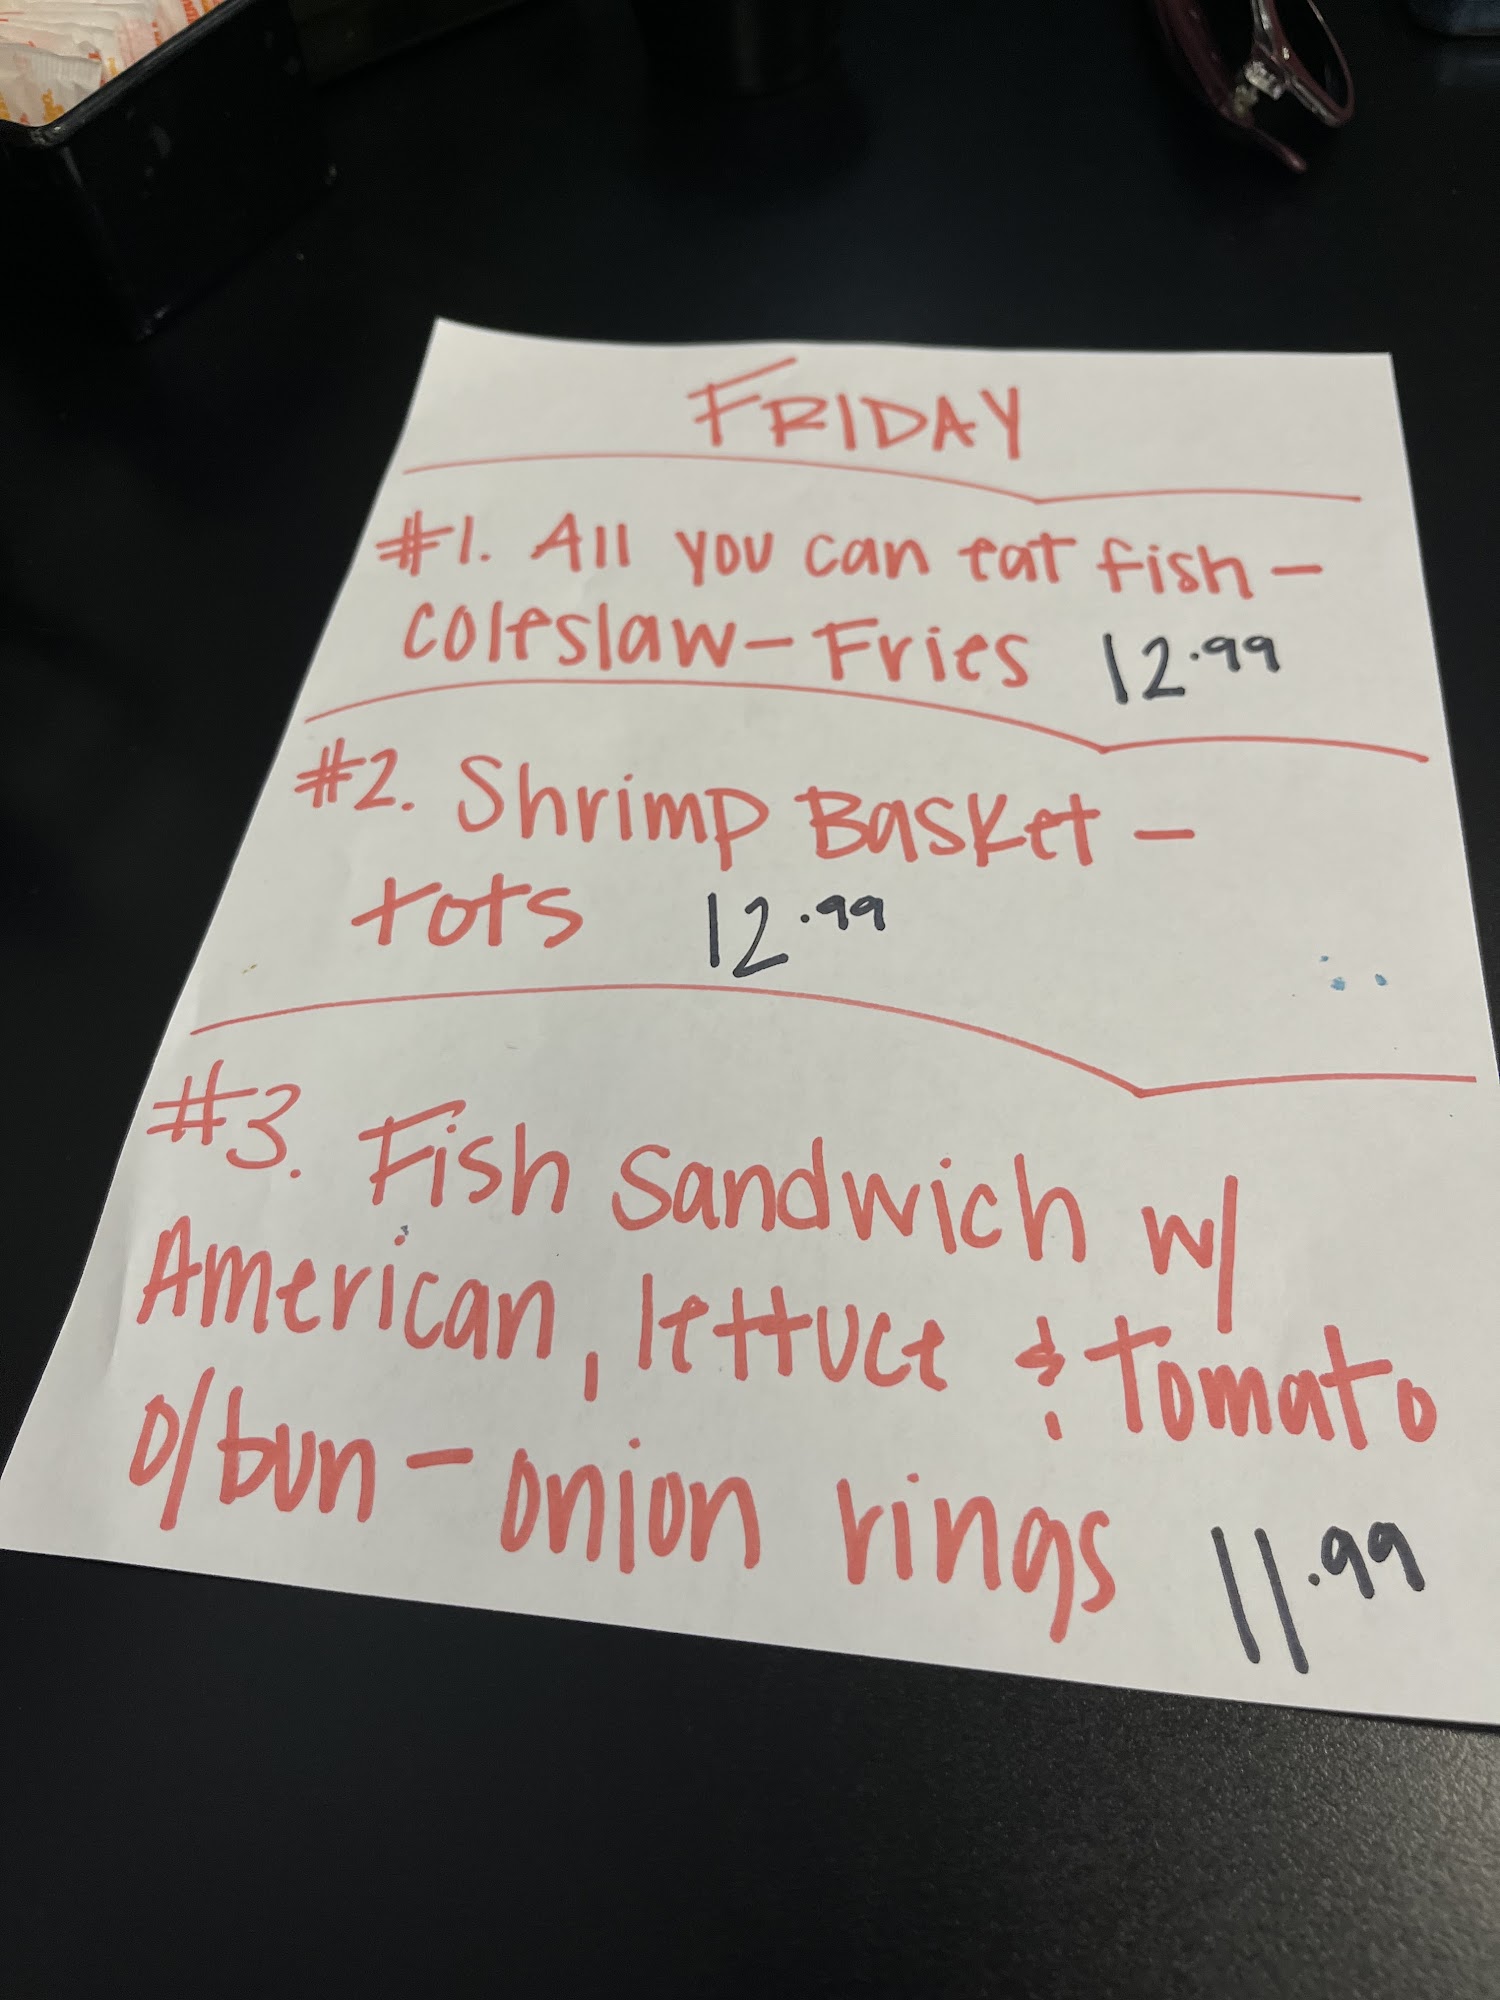 FRIDAY
#1. All you can eat fish -
coleslaw - Fries 12.99
#2. Shrimp Basket -
tots 12.99
#3. Fish Sandwich w/
American, lettuce & tomato
o/bun - onion rings 11.99